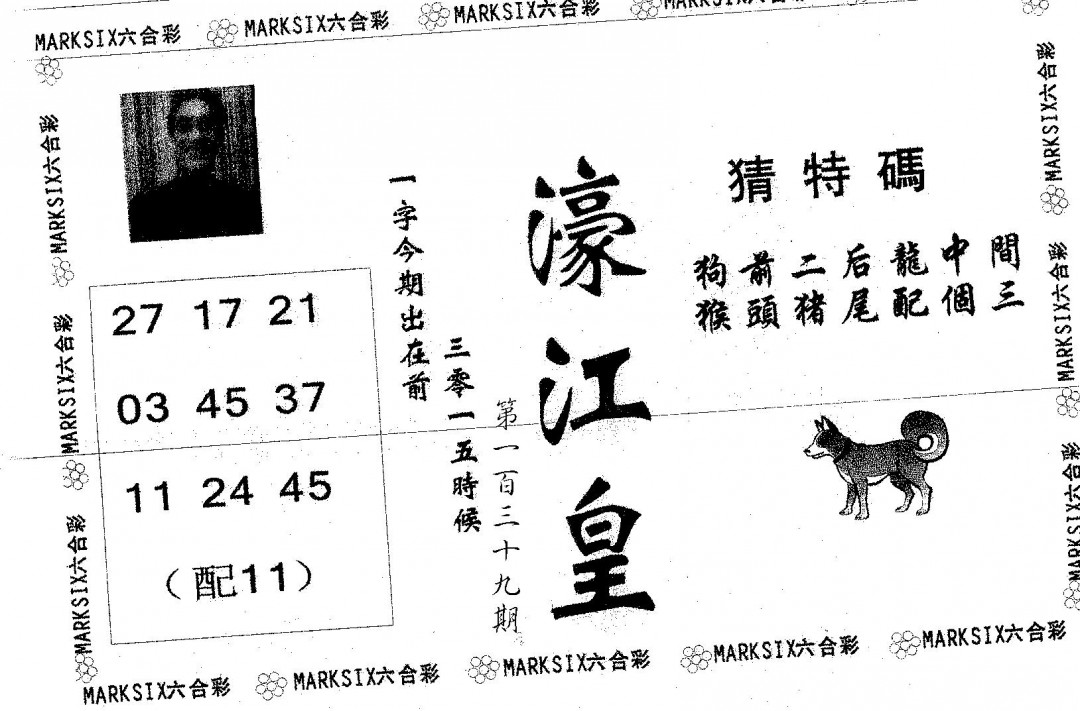 MARKSIX六合彩 MARKSIX六合彩 MARKSIX六合彩 MARKSIX六合彩
MARKSIX六合彩
MARKSIX六合彩
MARKSIX六合彩
27 17 21
03 45 37
11 24 45
(配11)
一字今期出在前
三零一五時候
第一百三十九期
濠江皇
猜特碼
狗前二后龍中間
猴頭豬尾配個三
MARKSIX六合彩
MARKSIX六合彩
MARKSIX六合彩
MARKSIX六合彩 MARKSIX六合彩 MARKSIX六合彩 MARKSIX六合彩 MARKSIX六合彩